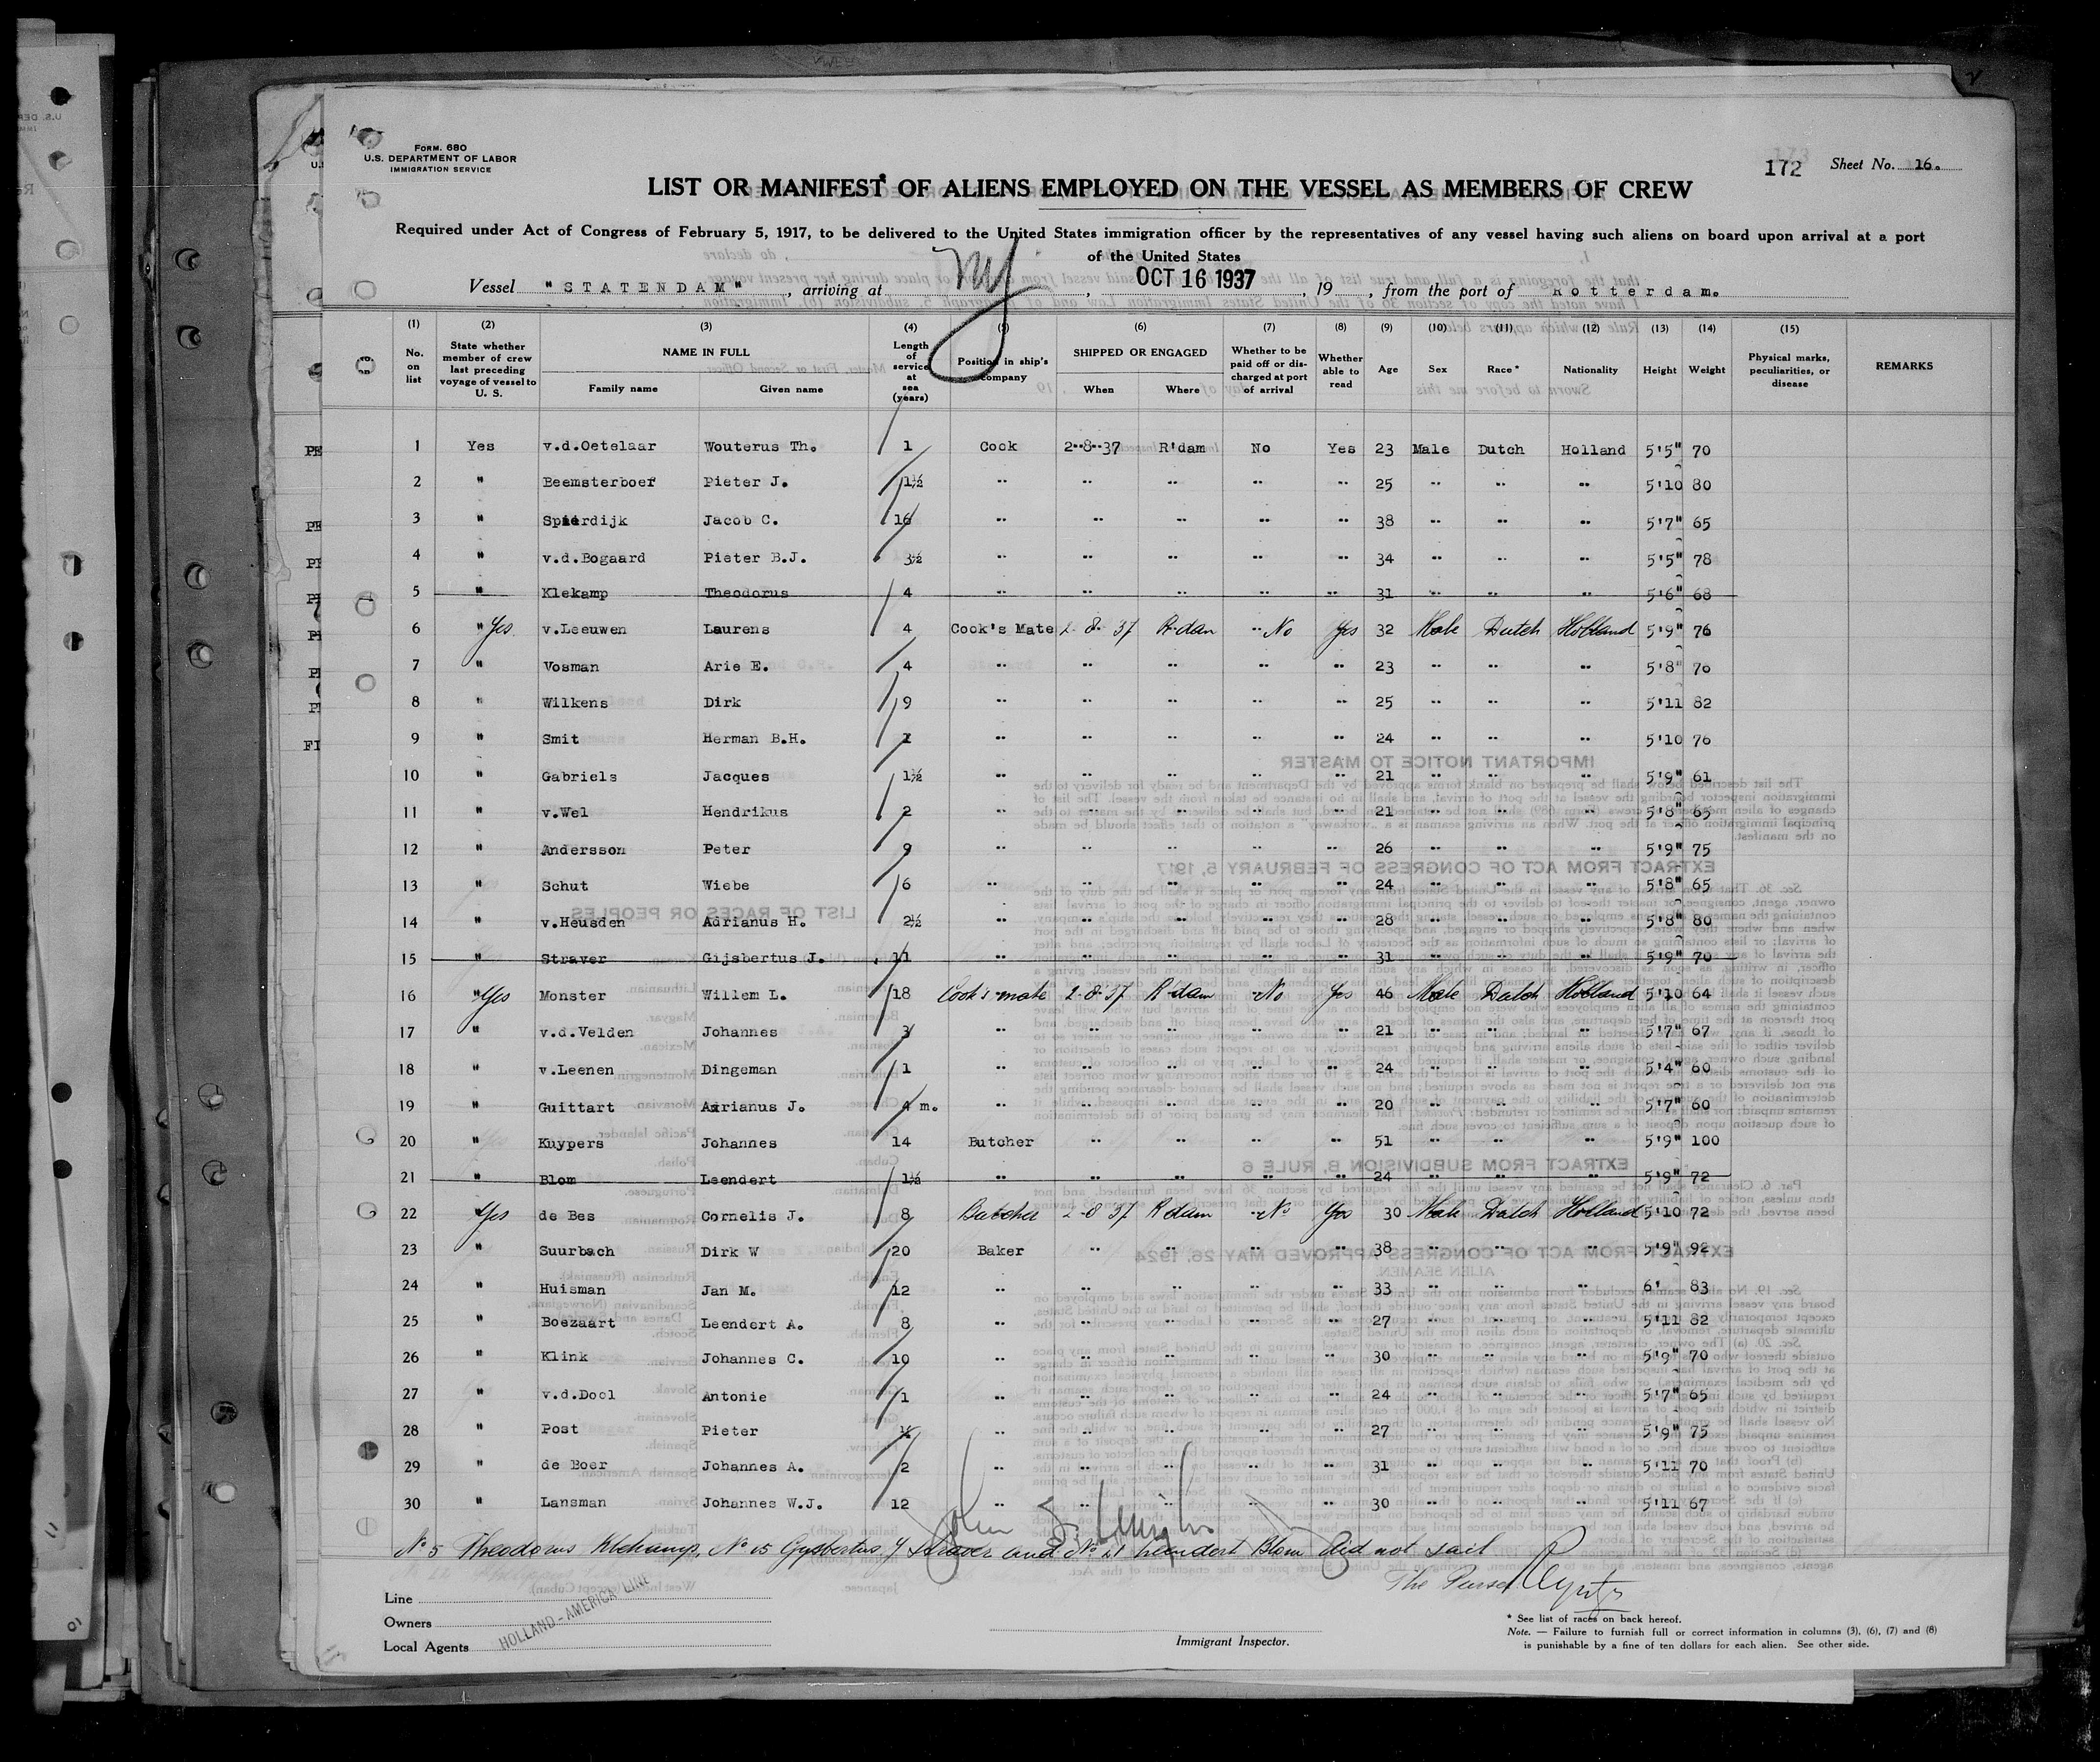 FORM. 680
U.S. DEPARTMENT OF LABOR
IMMIGRATION SERVICE
172 Sheet No. 16.
LIST OR MANIFEST OF ALIENS EMPLOYED ON THE VESSEL AS MEMBERS OF CREW
Required under Act of Congress of February 5, 1917, to be delivered to the United States immigration officer by the representatives of any vessel having such aliens on board upon arrival at a port
of the United States
Vessel "STATENDAM", arriving at NY, OCT 16 1937, 19 , from the port of Rotterdam.
(1) No. on list (2) State whether member of crew last preceding voyage of vessel to U. S. (3) NAME IN FULL Family name Given name (4) Length of service at sea (years) (5) Position in ship's company (6) SHIPPED OR ENGAGED When Where (7) Whether to be paid off or discharged at port of arrival (8) Whether able to read (9) Age (10) Sex (11) Race* (12) Nationality (13) Height (14) Weight (15) Physical marks, peculiarities, or disease REMARKS
1 Yes v.d.Oetelaar Wouterus Th. 1 Cook 2-8-37 R'dam No Yes 23 Male Dutch Holland 5'5" 70
2 " Beemsterboer Pieter J. 1½ " " " " " 25 " " " 5'10 80
3 " Spierdijk Jacob C. 16 " " " " " 38 " " " 5'7" 65
4 " v.d.Bogaard Pieter B.J. 3½ " " " " " 34 " " " 5'5" 78
5 " Klekamp Theodorus 4 " " " " " 31 " " " 5'6" 68
6 " Yes v.Leeuwen Laurens 4 Cook's Mate 2-8-37 R-dam " No Yes 32 Male Dutch Holland 5'9" 76
7 " Vosman Arie E. 4 " " " " " 23 " " " 5'8" 70
8 " Wilkens Dirk 9 " " " " " 25 " " " 5'11 82
9 " Smit Herman B.H. " " " " " 24 " " " 5'10 76
10 " Gabriels Jacques 1½ " " " " " 21 " " " 5'9" 61
11 " v.Wel Hendrikus 2 " " " " " 21 " " " 5'8" 65
12 " Andersson Peter 9 " " " " " 26 " " " 5'9" 75
13 " Schut Wiebe 6 " " " " " 24 " " " 5'8" 65
14 " v.Heusden Adrianus H. 2½ " " " " " 28 " " " 5'8" 80
15 " Straver Gijsbertus J. 11 " " " " " 31 " " " 5'9" 70
16 " Yes Monster Willem L. 18 Cook's mate 2-8-37 R-dam " No Yes 46 Male Dutch Holland 5'10 64
17 " v.d.Velden Johannes 3 " " " " " 21 " " " 5'7" 67
18 " v.Leenen Dingeman 1 " " " " " 24 " " " 5'4" 60
19 " Guittart Adrianus J. 4 m. " " " " " 20 " " " 5'7" 60
20 " Kuypers Johannes 14 Butcher " " " " 51 " " " 5'9" 100
21 " Blom Leendert 1½ " " " " " 24 " " " 5'9" 72
22 " Yes de Bes Cornelis J. 8 Butcher 2-8 37 R dam " No Yes 30 Male Dutch Holland 5'10 72
23 " Suurbach Dirk W 20 Baker " " " " 38 " " " 5'9" 92
24 " Huisman Jan M. 12 " " " " " 33 " " " 6' 83
25 " Boezaart Leendert A. 8 " " " " " 27 " " " 5'11 82
26 " Klink Johannes C. 10 " " " " " 30 " " " 5'9" 70
27 " v.d.Dool Antonie 1 " " " " " 24 " " " 5'7" 65
28 " Post Pieter " " " " " 27 " " " 5'9" 75
29 " de Boer Johannes A. 2 " " " " " 31 " " " 5'11 70
30 " Lansman Johannes W.J. 12 " " " " " 30 " " " 5'11 67
No 5 Theodorus Klekamp, No 15 Gysbertus J Straver and No 21 Leendert Blom did not sail
The Purser
Line
Owners
Local Agents
HOLLAND-AMERICA LINE
Immigrant Inspector.
* See list of races on back hereof.
Note. — Failure to furnish full or correct information in columns (3), (6), (7) and (8)
is punishable by a fine of ten dollars for each alien. See other side.